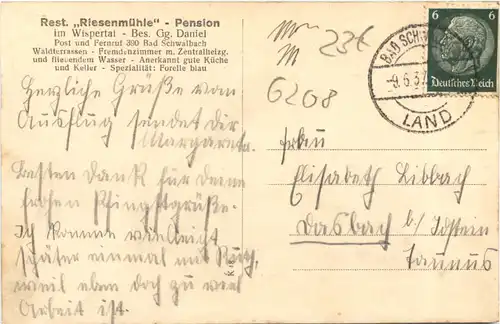 Rest. „Riesenmühle" - Pension
im Wispertal - Bes. Gg. Daniel
Post und Fernruf 390 Bad Schwalbach
Waldterrassen - Fremdenzimmer m. Zentralheizg.
und fließendem Wasser - Anerkannt gute Küche
und Keller - Spezialität: Forelle blau
Herzliche Grüße vom
Ausflug sendet Dir
Margareta.
Besten Dank für Deine
frohen Pfingstgrüße.
Ich komme vielleicht
später einmal mit Ruth,
weil eben doch zu viel
Arbeit ist.
23€
6208
BAD SCH
-9.6.3
LAND
6
Deutsches Reich
Frau
Elisabeth Libbach
Dasbach b/ Idstein
Taunus